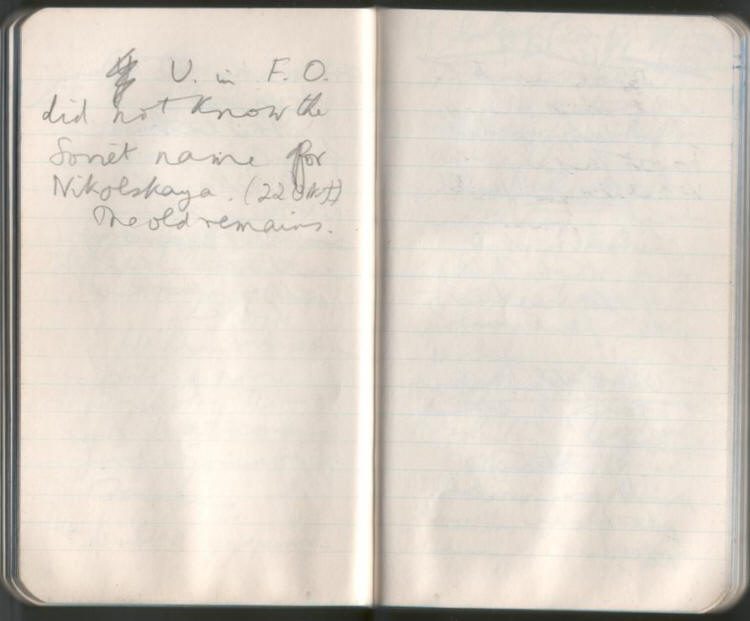 U. in F. O.
did not know the
Soviet name for
Nikolskaya. (22 Okt)
The old remains.